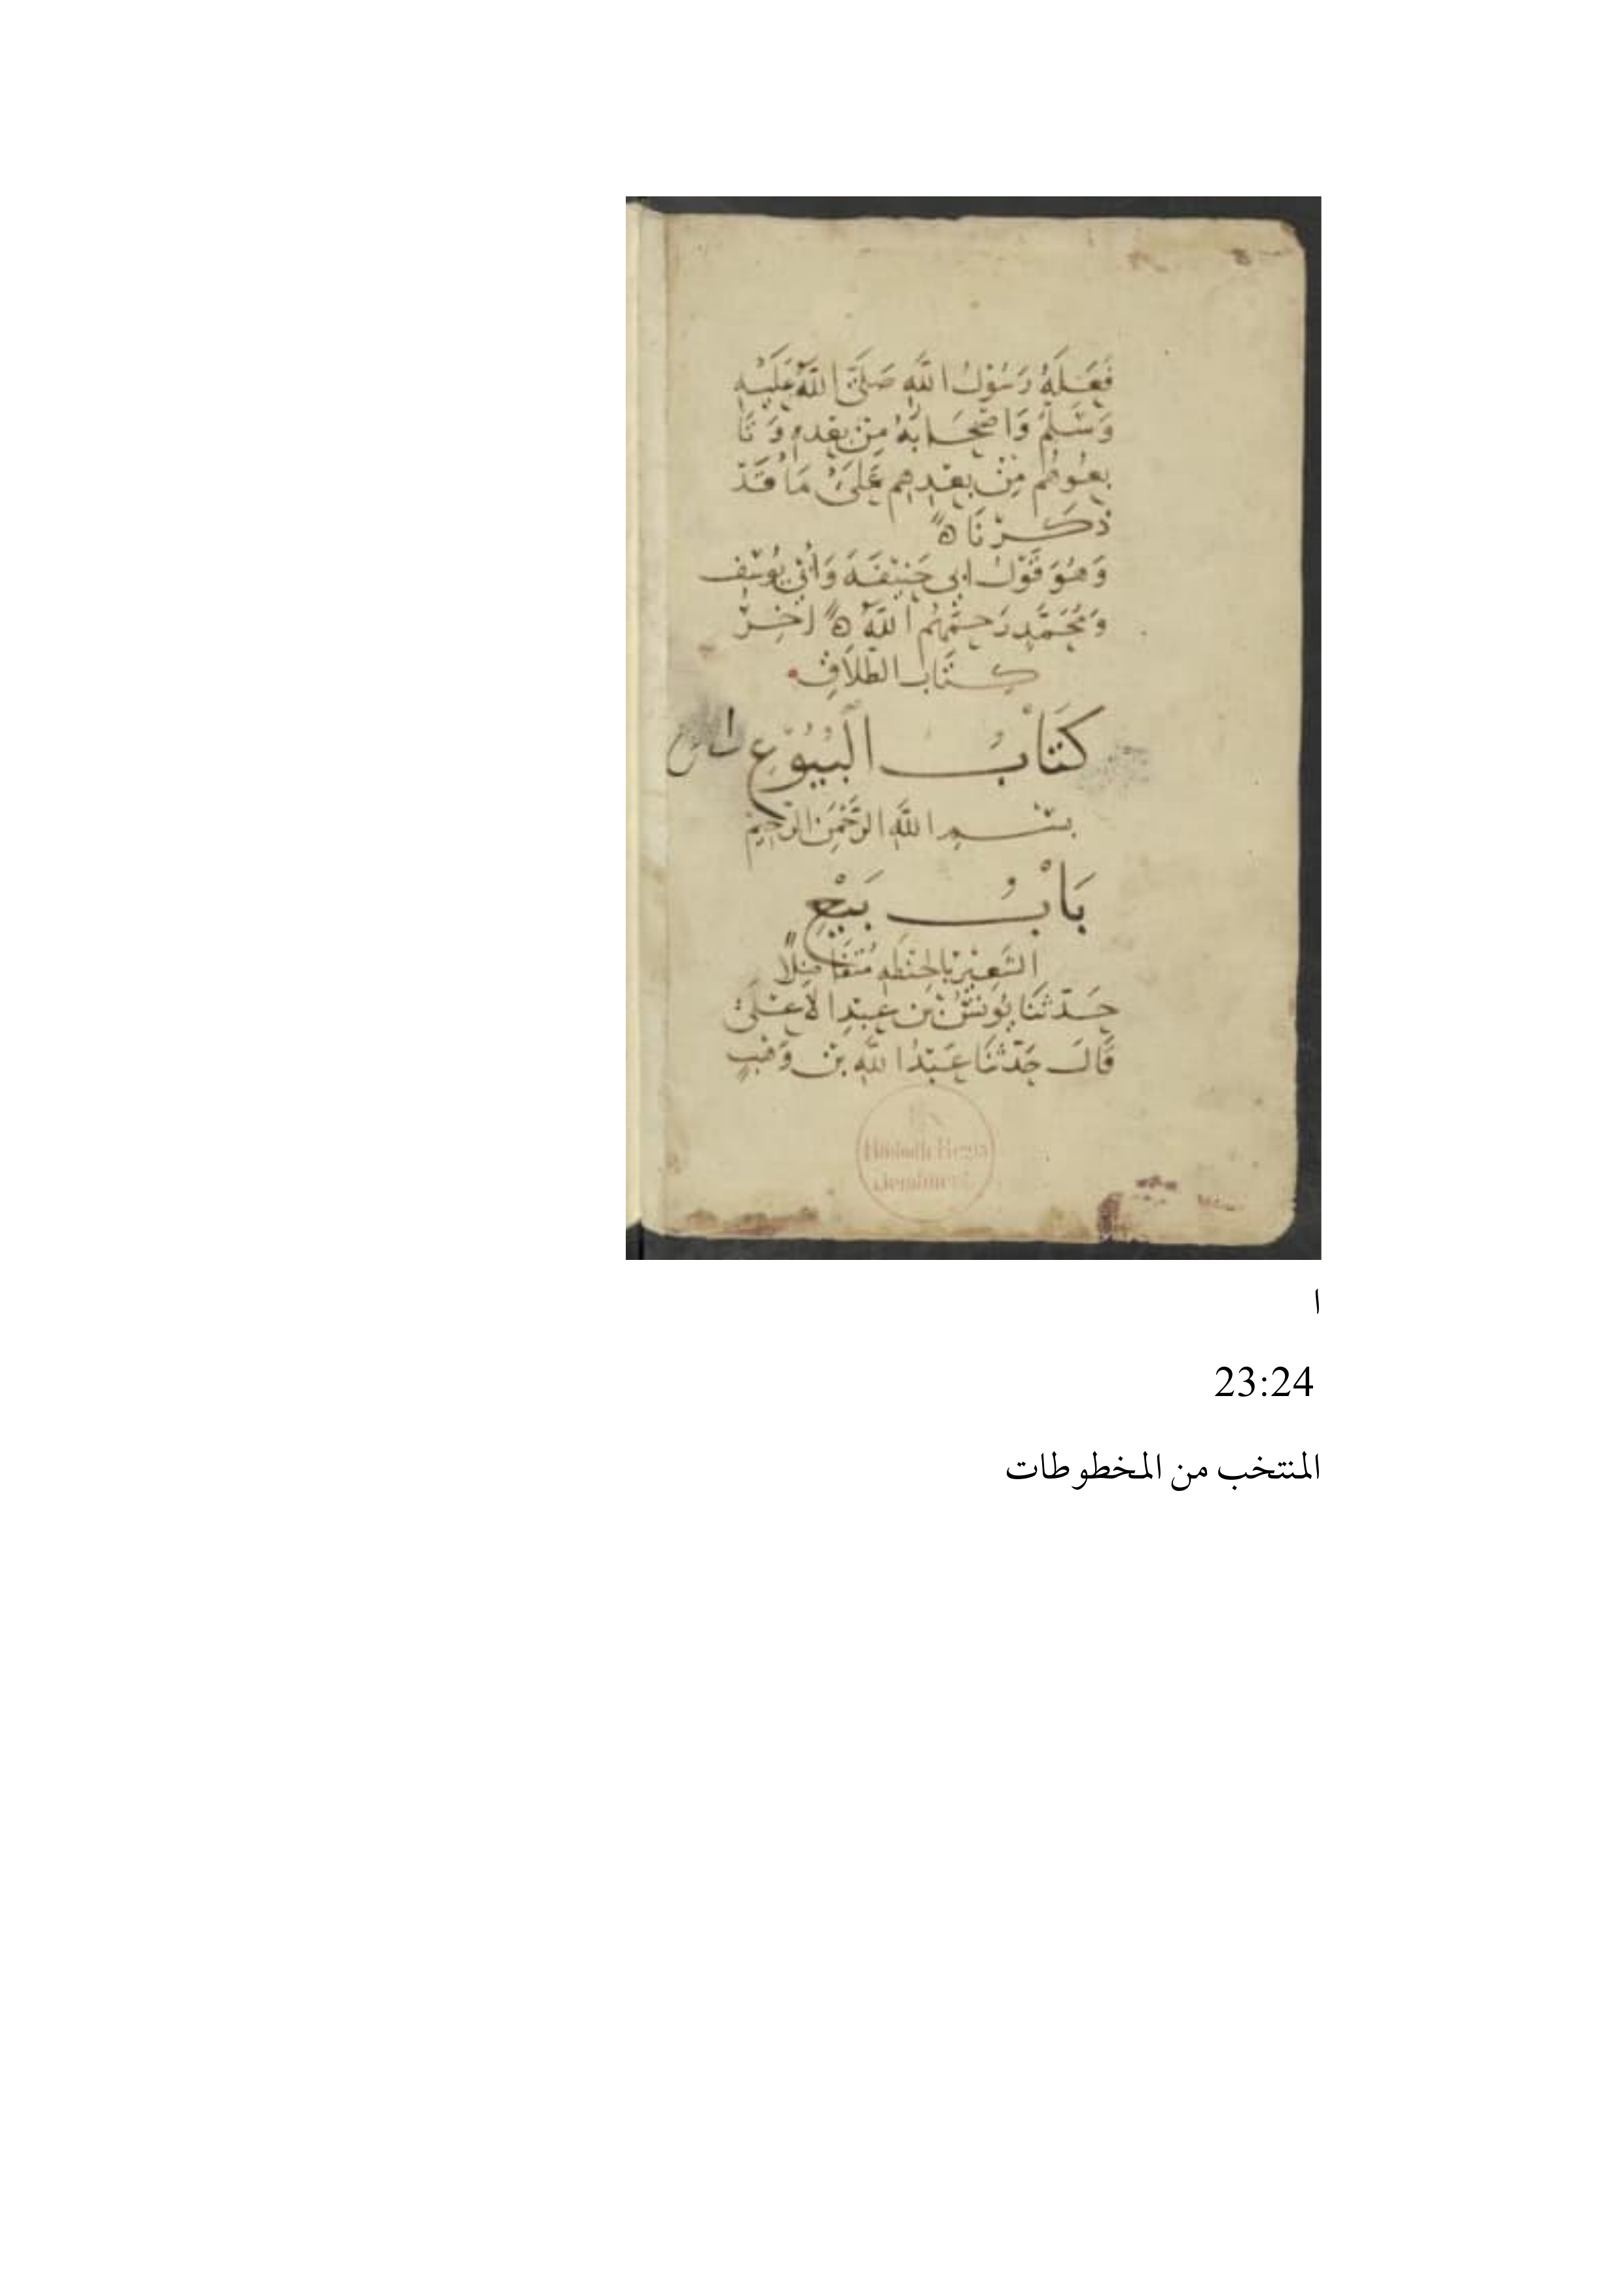 فَعَلَهُ رَسُوْلُ اللَّهِ صَلَّى اللَّهُ عَلَيْهِ
وَسَلَّمَ وَاَصْحَابُهُ مِنْ بَعْدِهِ وَتَا
بِعُوهُمْ مِنْ بَعْدِهِم عَلَىْ مَا قَدْ
ذَكَرْنَا ه
وَهُوَ قَوْلُ ابى حَنِيْفَهَ وَأَبِى يُوسُف
وَمُحَمَّدٍ رَحِمَهُم اللَّهُ ه اخِرُ
كِتَاب الطَّلَاقِ
كَتَابُ الْبُيُوْعِ
بِسْمِ اللَّهِ الرَّحْمَنِ الرَّحِيْمِ
بَابُ بَيْعِ
الشَّعِيْرِ بِالحِنْطَهِ مُتَفَاضِلاً
حَدَّثَنَا يُونُسُ بن عَبْدِ الاَعْلَىْ
قَالَ حَدَّثَنَا عَبْدُ اللَّهِ بْن وَهْبٍ
ا
23:24
المنتخب من المخطوطات